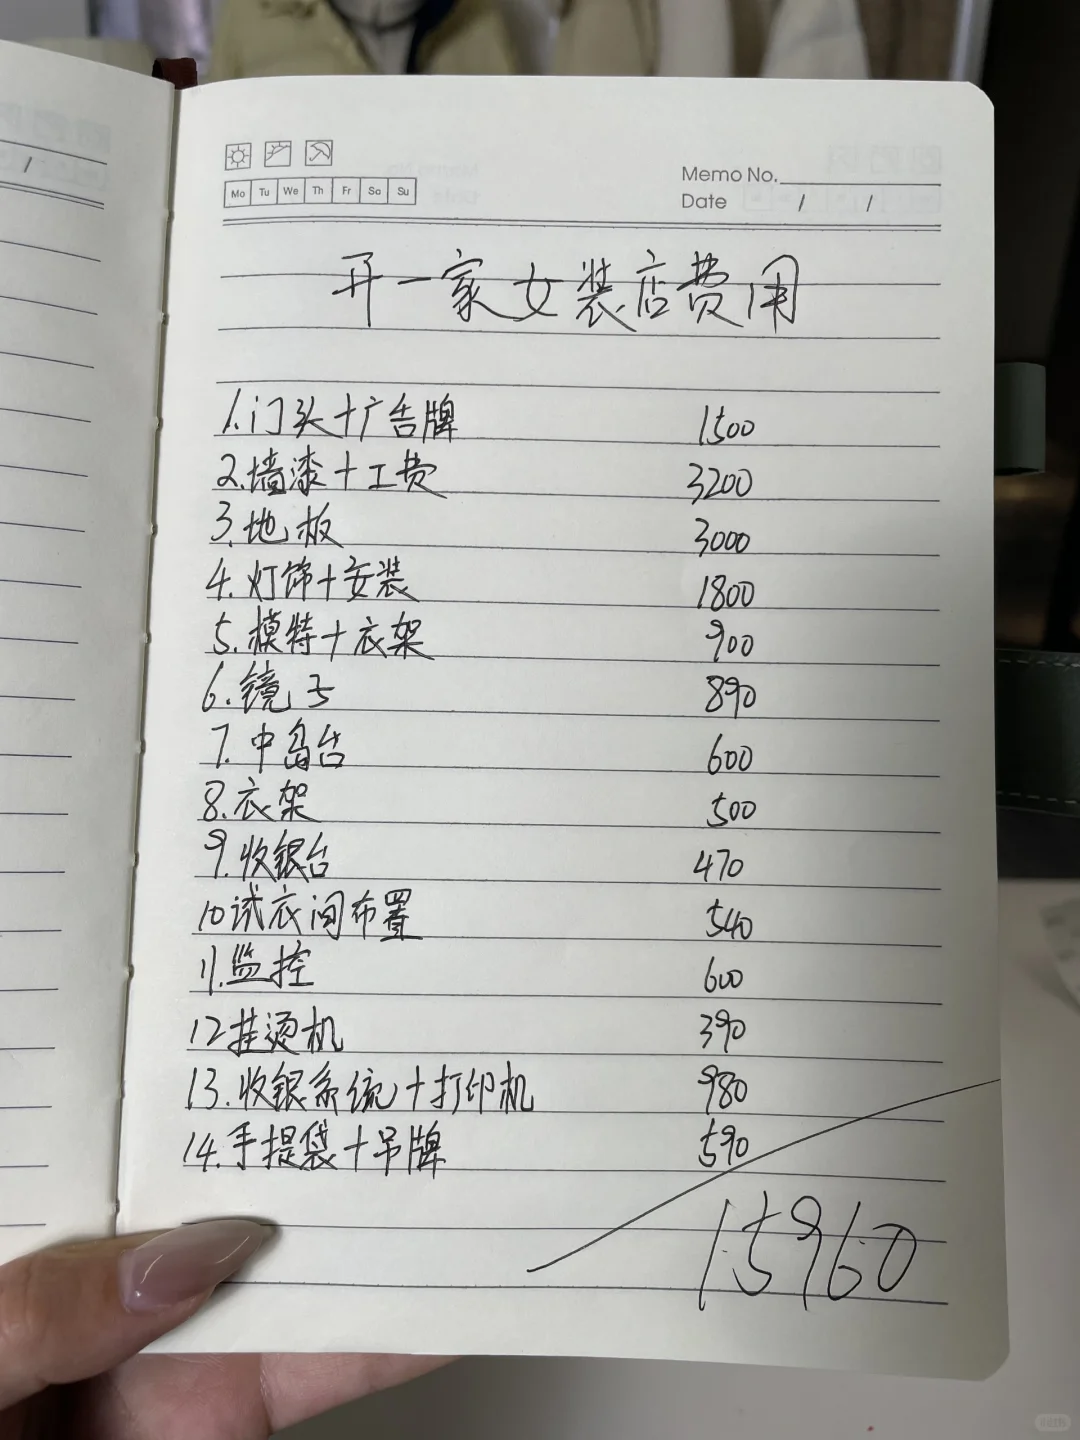 Mo Tu We Th Fr Sa Su
Memo No.
Date / /
开一家女装店费用
1.门头+广告牌 1500
2.墙漆+工费 3200
3.地板 3000
4.灯饰+安装 1800
5.模特+衣架 900
6.镜子 890
7.中岛台 600
8.衣架 500
9.收银台 470
10试衣间布置 540
11.监控 600
12挂烫机 390
13.收银系统+打印机 980
14.手提袋+吊牌 590
15960